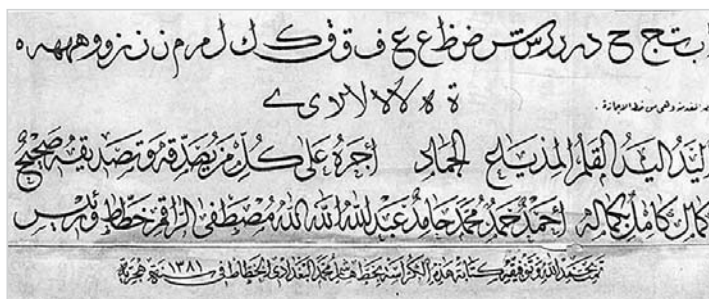 ا ب ت ج ح د ر ز س ش ض ظ ع غ ف و ق ك ل ل م ر م ن ن ز و و ه ه ه ه
ة ه لا لا لا لا ى ے
المقدمة وهي من خط الاجازة .
اليَدُ اليَدُ القَلَمُ المِذيَاعِ الجَمَادِ أجرَهُ عَلَى كُلِّ مَن يُصَدِّقُهُ وَتَصدِيقُهُ صَحِيحٌ
كَمَال كَامِلٌ بِكَمَالِهِ أَحمَدُ حَمَدُ مُحَمَّد حَامِدُ عَبدُ اللهُ اللهُ اللهُ مُصطَفَى الرَّاقِم خَطَّاط وَ
تم بحمد الله وتوفيقه كتابة هذه الكراسة بخط هاشم محمد البغدادي الخطاط في سنة ١٣٨١ هجرية